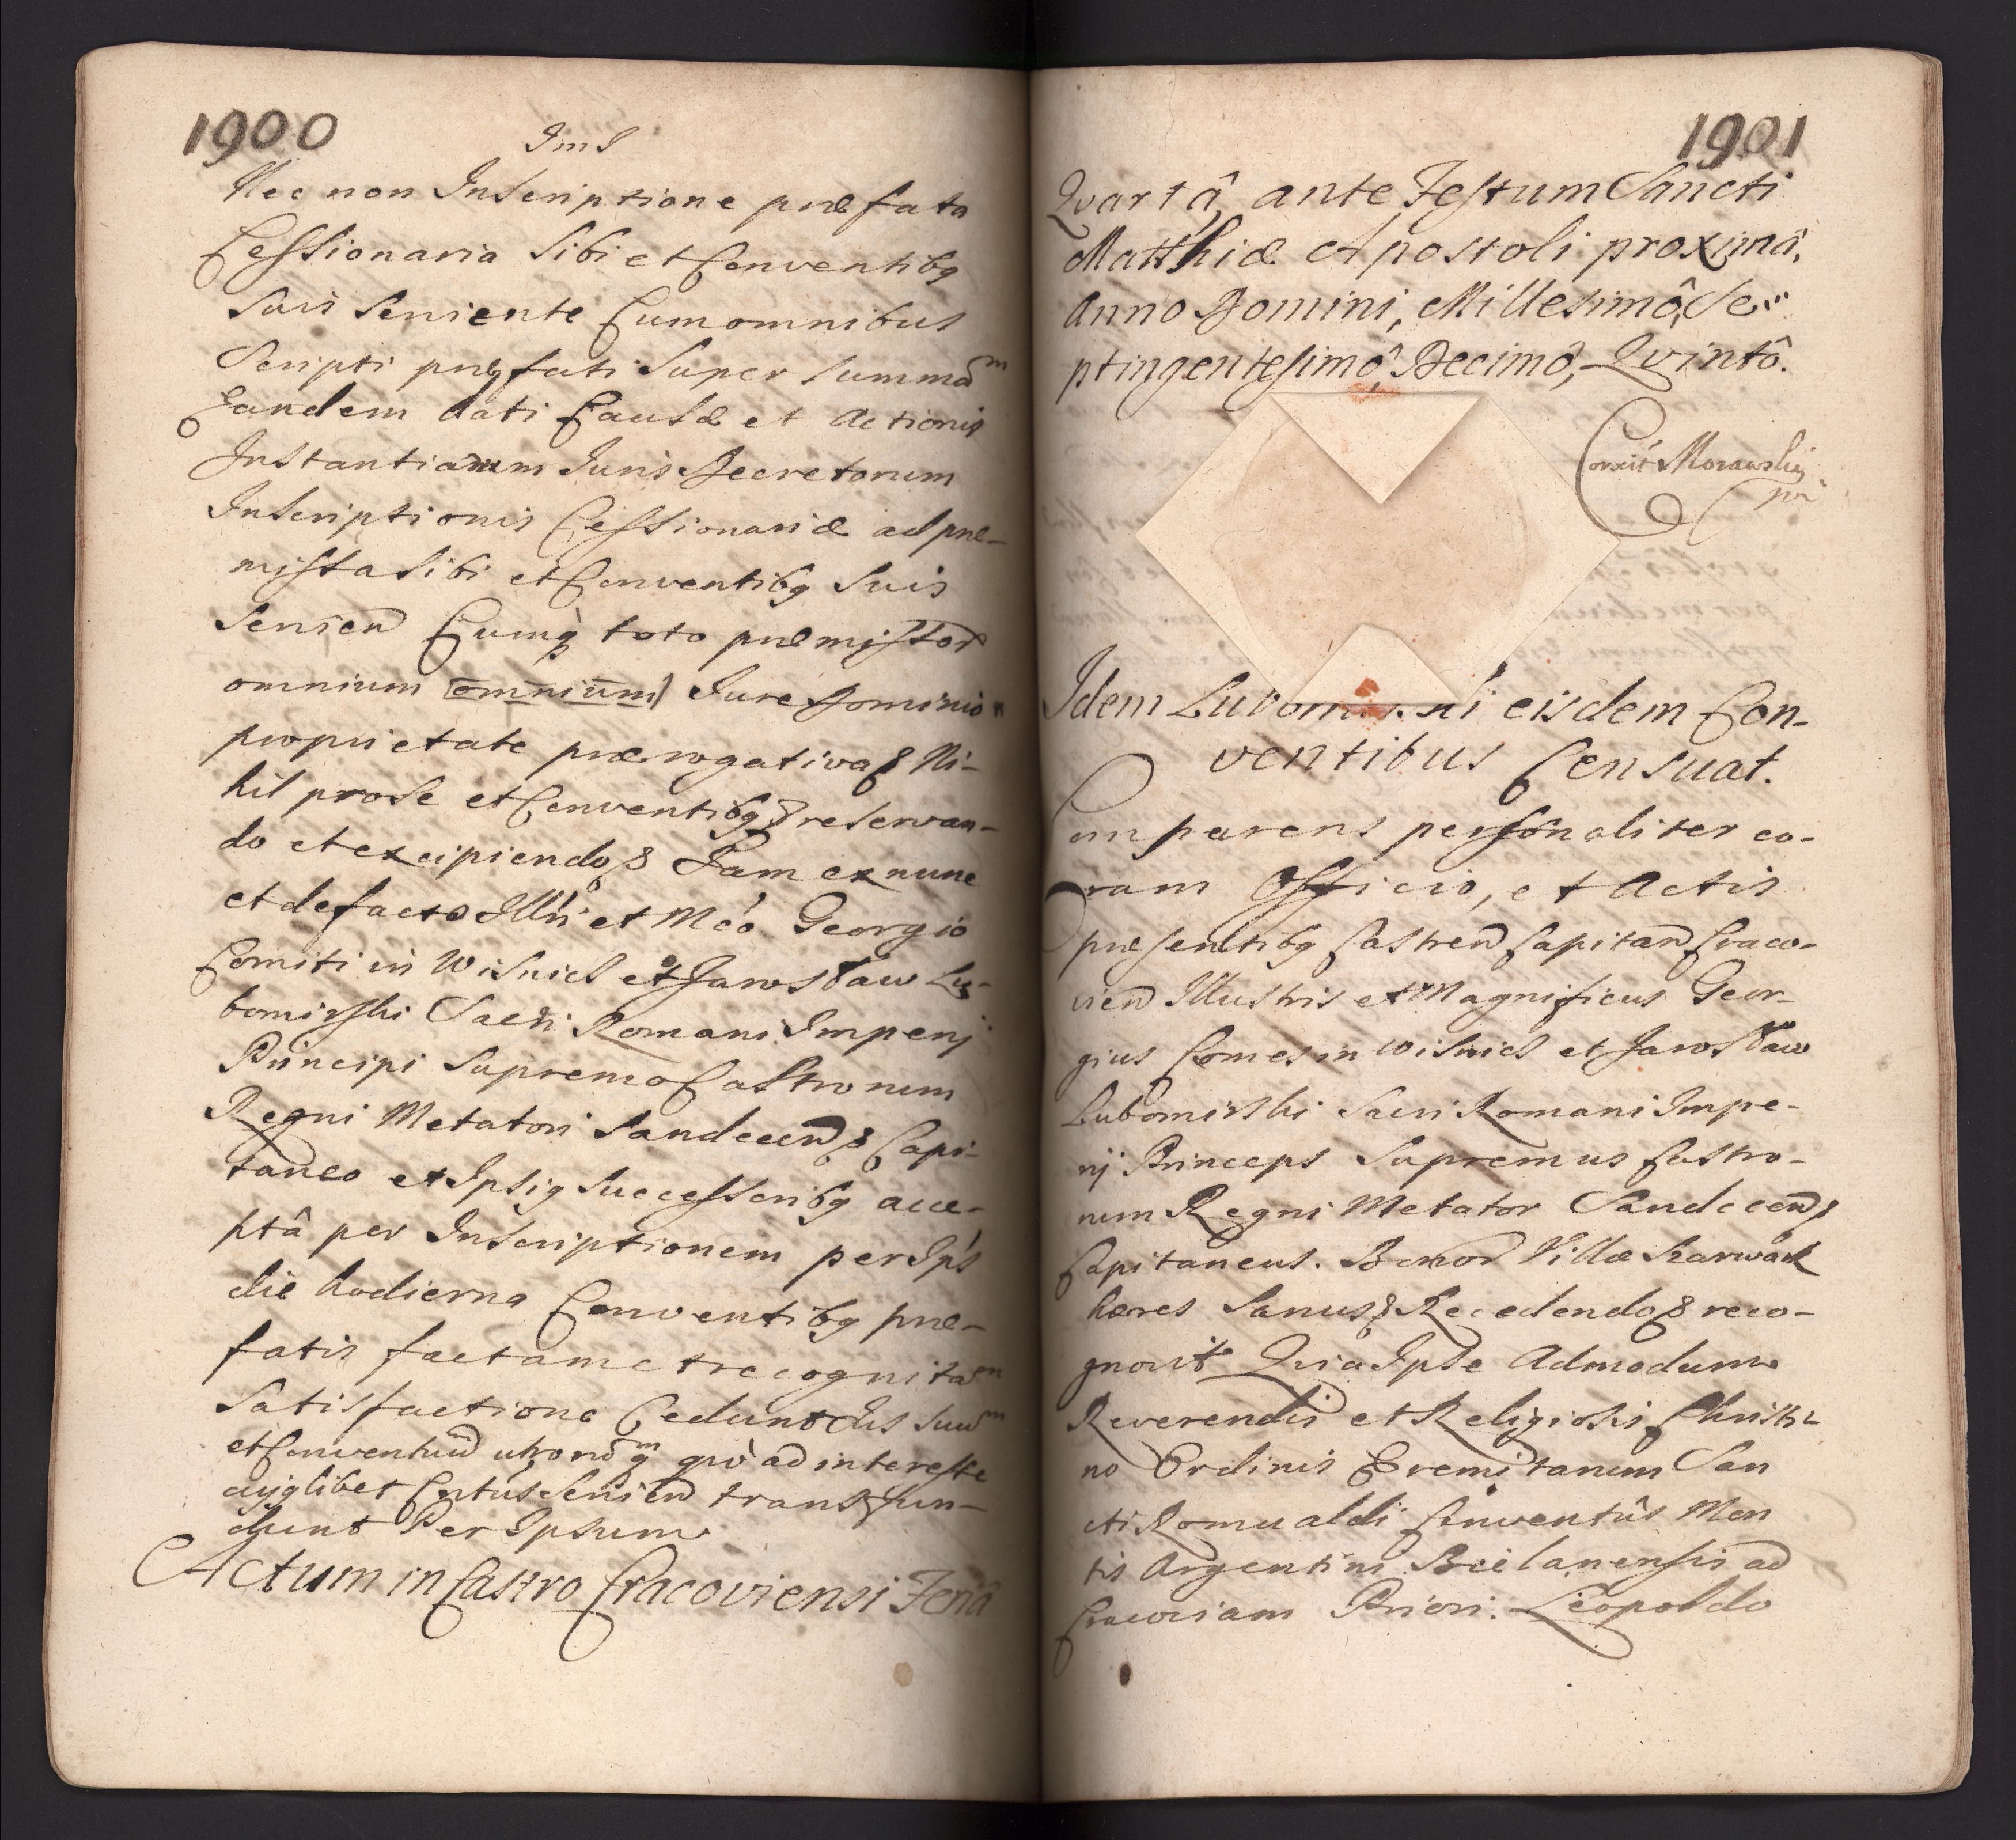 1900
Nec non Inscriptione præfata
Cessionaria Sibi et Conventibq
Suis Serviente Cum omnibus
Scripti præfati Super Summam
Eandem dati Causæ et Actionis
Instantiarum Juris Decretorum
Inscriptionis Cessionariæ ad præ-
missa Sibi et Conventibq Suis
Servien Cumq toto præmissor
omnium (omnium) Jure Dominio
proprietate prærogativa & Ni-
hil pro Se et Conventibq & reservan-
do et excipiendo & Jam ex nunc
et de facto Illri et Mco Georgio
Comiti in Wisnicz et Jarosław Lu-
bomirski Sacri Romani Imperij
Principi Supremo Castrorum
Regni Metatori Sandecen & Capi-
taneo et Ipsiq Successoribq acce-
ptâ per Inscriptionem per Ips
die hodierna Conventibq præ-
fatis factam et recognitam
Satisfactione Cedunt Jus Suum
et Conventuu utrorumq quo ad interesse
cujqlibet Cntus Servien transfun-
dunt Per Ipsum
Actum in Castro Cracoviensi Feriâ
1901
Qvartâ, ante Festum Sancti
Matthiæ Apostoli proximâ,
Anno Domini, Millesimô, Se-
ptingentesimô, Decimô, Qvintô.
Correxit Morawski
mpr
Idem Lubomirski eisdem Con-
ventibus Censuat.
Comparens personaliter co-
ram Officio, et Actis
præsentibq Castren Capitan Craco-
vien Illustris et Magnificus Geor-
gius Comes in Wisnicz et Jarosław
Lubomirski Sacri Romani Impe-
rij Princeps Supremus Castro-
rum Regni Metator Sandecen &
Capitaneus. Bonor Villæ Szarwark
hæres Sanus & Recedendo & reco-
gnovit Quia Ipse Admodum
Reverendis et Religiosis Christi-
no Ordinis Eremitarum San
cti Romualdi Conventûs Mon
tis Argentini Bielanensis ad
Cracoviam Priori. Leopoldo